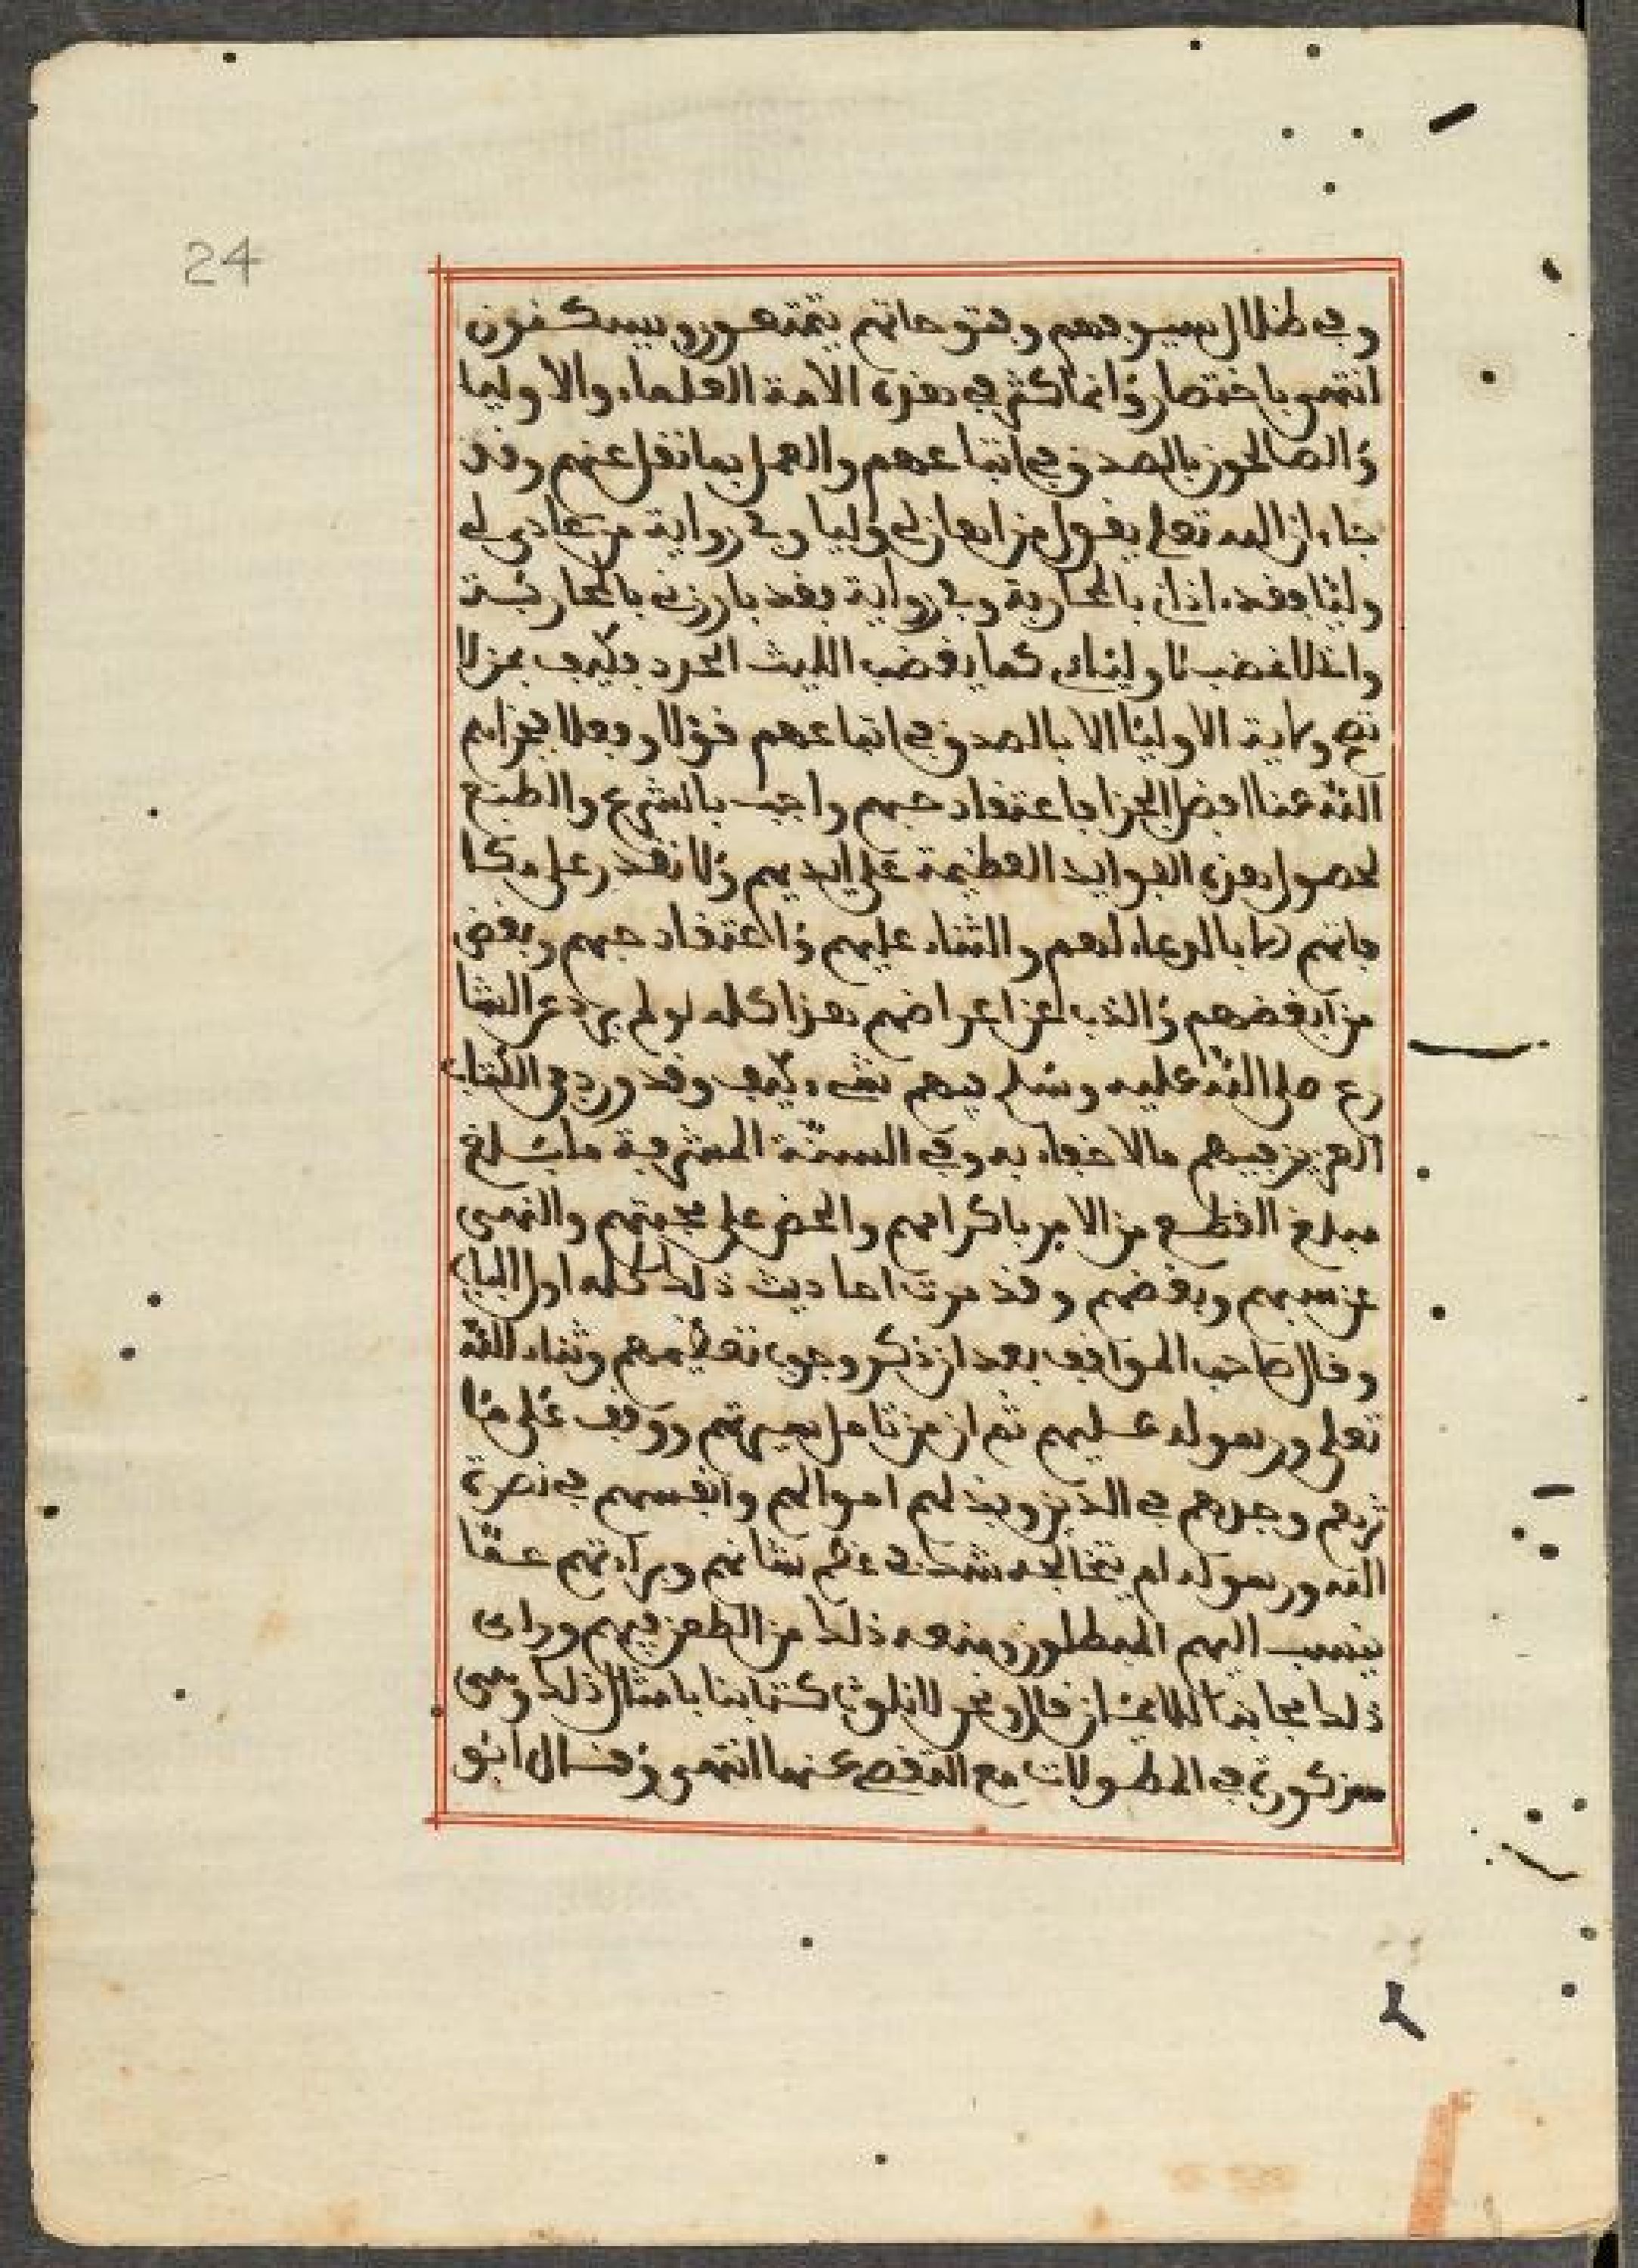 24
وفي ظلال سيوفهم وفتوحاتهم يتمتعون ويسكنون
انتهى باختصار وانما كثر في هذه الامة العلماء والاوليا
والصالحون بالصدق في اتباعهم والعمل بما نقل عنهم وقد
جاء ان الله تعلى يقول من اهان لي وليا وفي رواية من عادى لي
وليا فقد اذاني بالمحاربة وفي رواية فقد بارزني بالمحاربة
وانا لاغضب لاوليائي كما يغضب الليث الحرد فكيف بمن لا
تصح ولاية الاوليا الا بالصدق في اتباعهم قولا وفعلا فجزاهم
الله عنا افضل الجزا فاعتقاد حبهم واجب بالشرع والطبع
لحصول هذه الفوايد العظيمة على ايديهم ولا نقدر على مكا
فاتهم الا بالدعاء لهم والثناء عليهم واعتقاد حبهم وبغض
من ابغضهم والذب عن اعراضهم هذا كله لو لم يرد عن الشا
رع صلى الله عليه وسلم فيهم شيء كيف وقد ورد في الكتاب
العزيز فيهم ما لا خفاء به وفي السنة المشرفة ما يبلغ
مبلغ القطع من الامر باكرامهم والحض على محبتهم والنهى
عن سبهم وبغضهم وقد مرت احاديث ذلك كله اول الباب
وقال صاحب المواقف بعد ان ذكر وجوب تعظيمهم وثناء الله
تعلى ورسوله عليهم ثم ان من تامل سيرتهم ووقف على مئا
ثرهم وجدهم في الدين وبذلهم اموالهم وانفسهم في نصرة
الله ورسوله لم يتخالجه شك في عظم شانهم وبراءتهم عما
ينسب اليهم المبطلون ومنعه ذلك من الطعن فيهم وراى
ذلك مجانبا للايمان قال ونحن لا نلوث كتابنا بامثال ذلك وهى
مذكورة في المطولات مع التفصي عنها انتهى وقال ابو